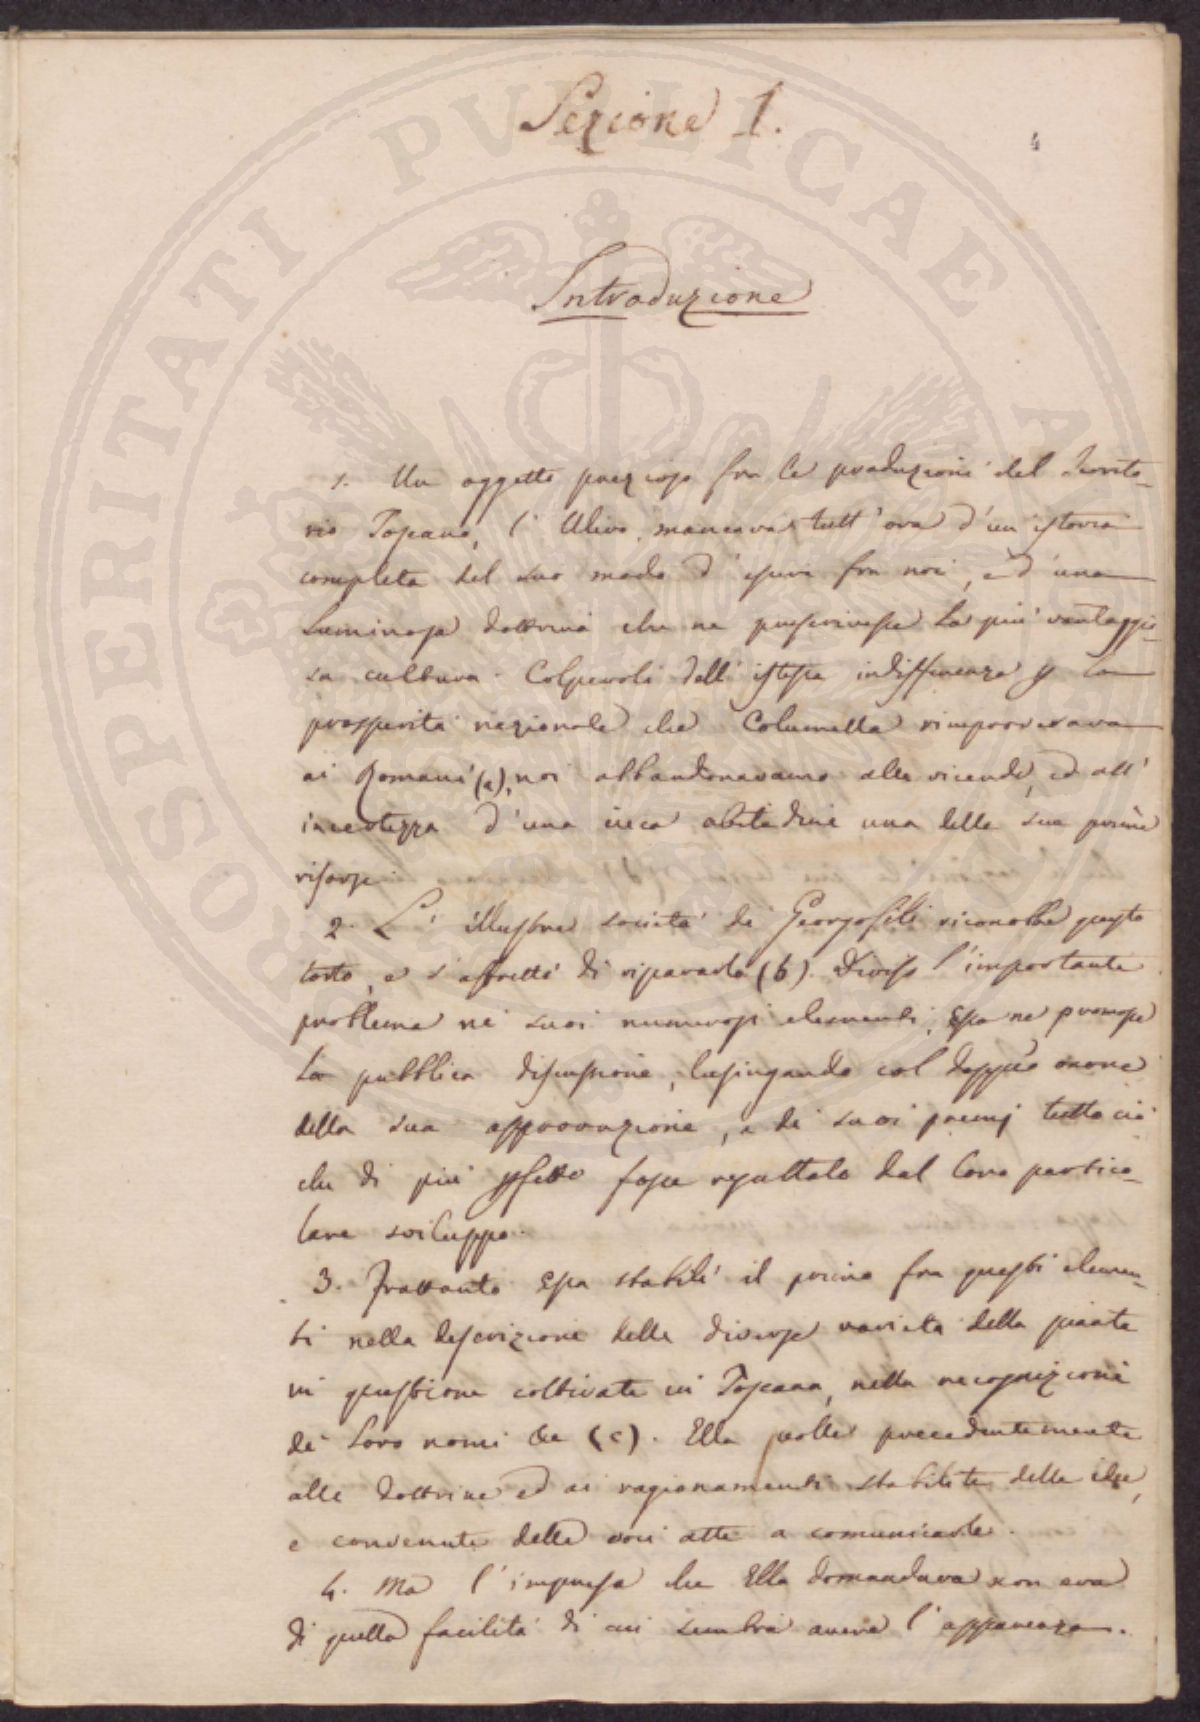 Sezione 1.
4
Introduzione
1. Un oggetto prezioso fra le produzioni del Territo-
rio Toscano, l'Ulivo, mancava tutt'ora d'un istoria
completa del suo modo d'essere fra noi, e d'una
luminosa dottrina che ne prescrivesse la più vantaggio-
sa cultura. Colpevoli dell'istessa indifferenza p la
prosperità nazionale che Columella rimproverava
ai Romani (a), noi abbandonavamo alle vicende, ed all'
incertezza d'una cieca abitudine una delle sue prime
risorse.
2. L'illustre società dei Georgofili riconobbe questo
torto, e s'affrettò di ripararlo (b). Diviso l'importante
problema nei suoi numerosi elementi, Essa ne promosse
la pubblica discussione, lusingando col doppio onore
della sua approvazione, e dei suoi premj tutto ciò
che di più pfetto fosse resultato dal loro partico-
lare sviluppo.
3. Frattanto Essa stabilì il primo fra questi elemen-
ti nella descrizione delle diverse varietà della pianta
in questione coltivate in Toscana, nella recognizione
dei loro nomi &c (c). Ella volle precedentemente
alle dottrine ed ai ragionamenti stabilite delle idee,
e convenute delle voci atte a comunicarle.
4. Ma l'impresa che Ella domandava non era
di quella facilità di cui sembra avere l'apparenza.
PROSPERITATI PUBLICAE AUGENDAE